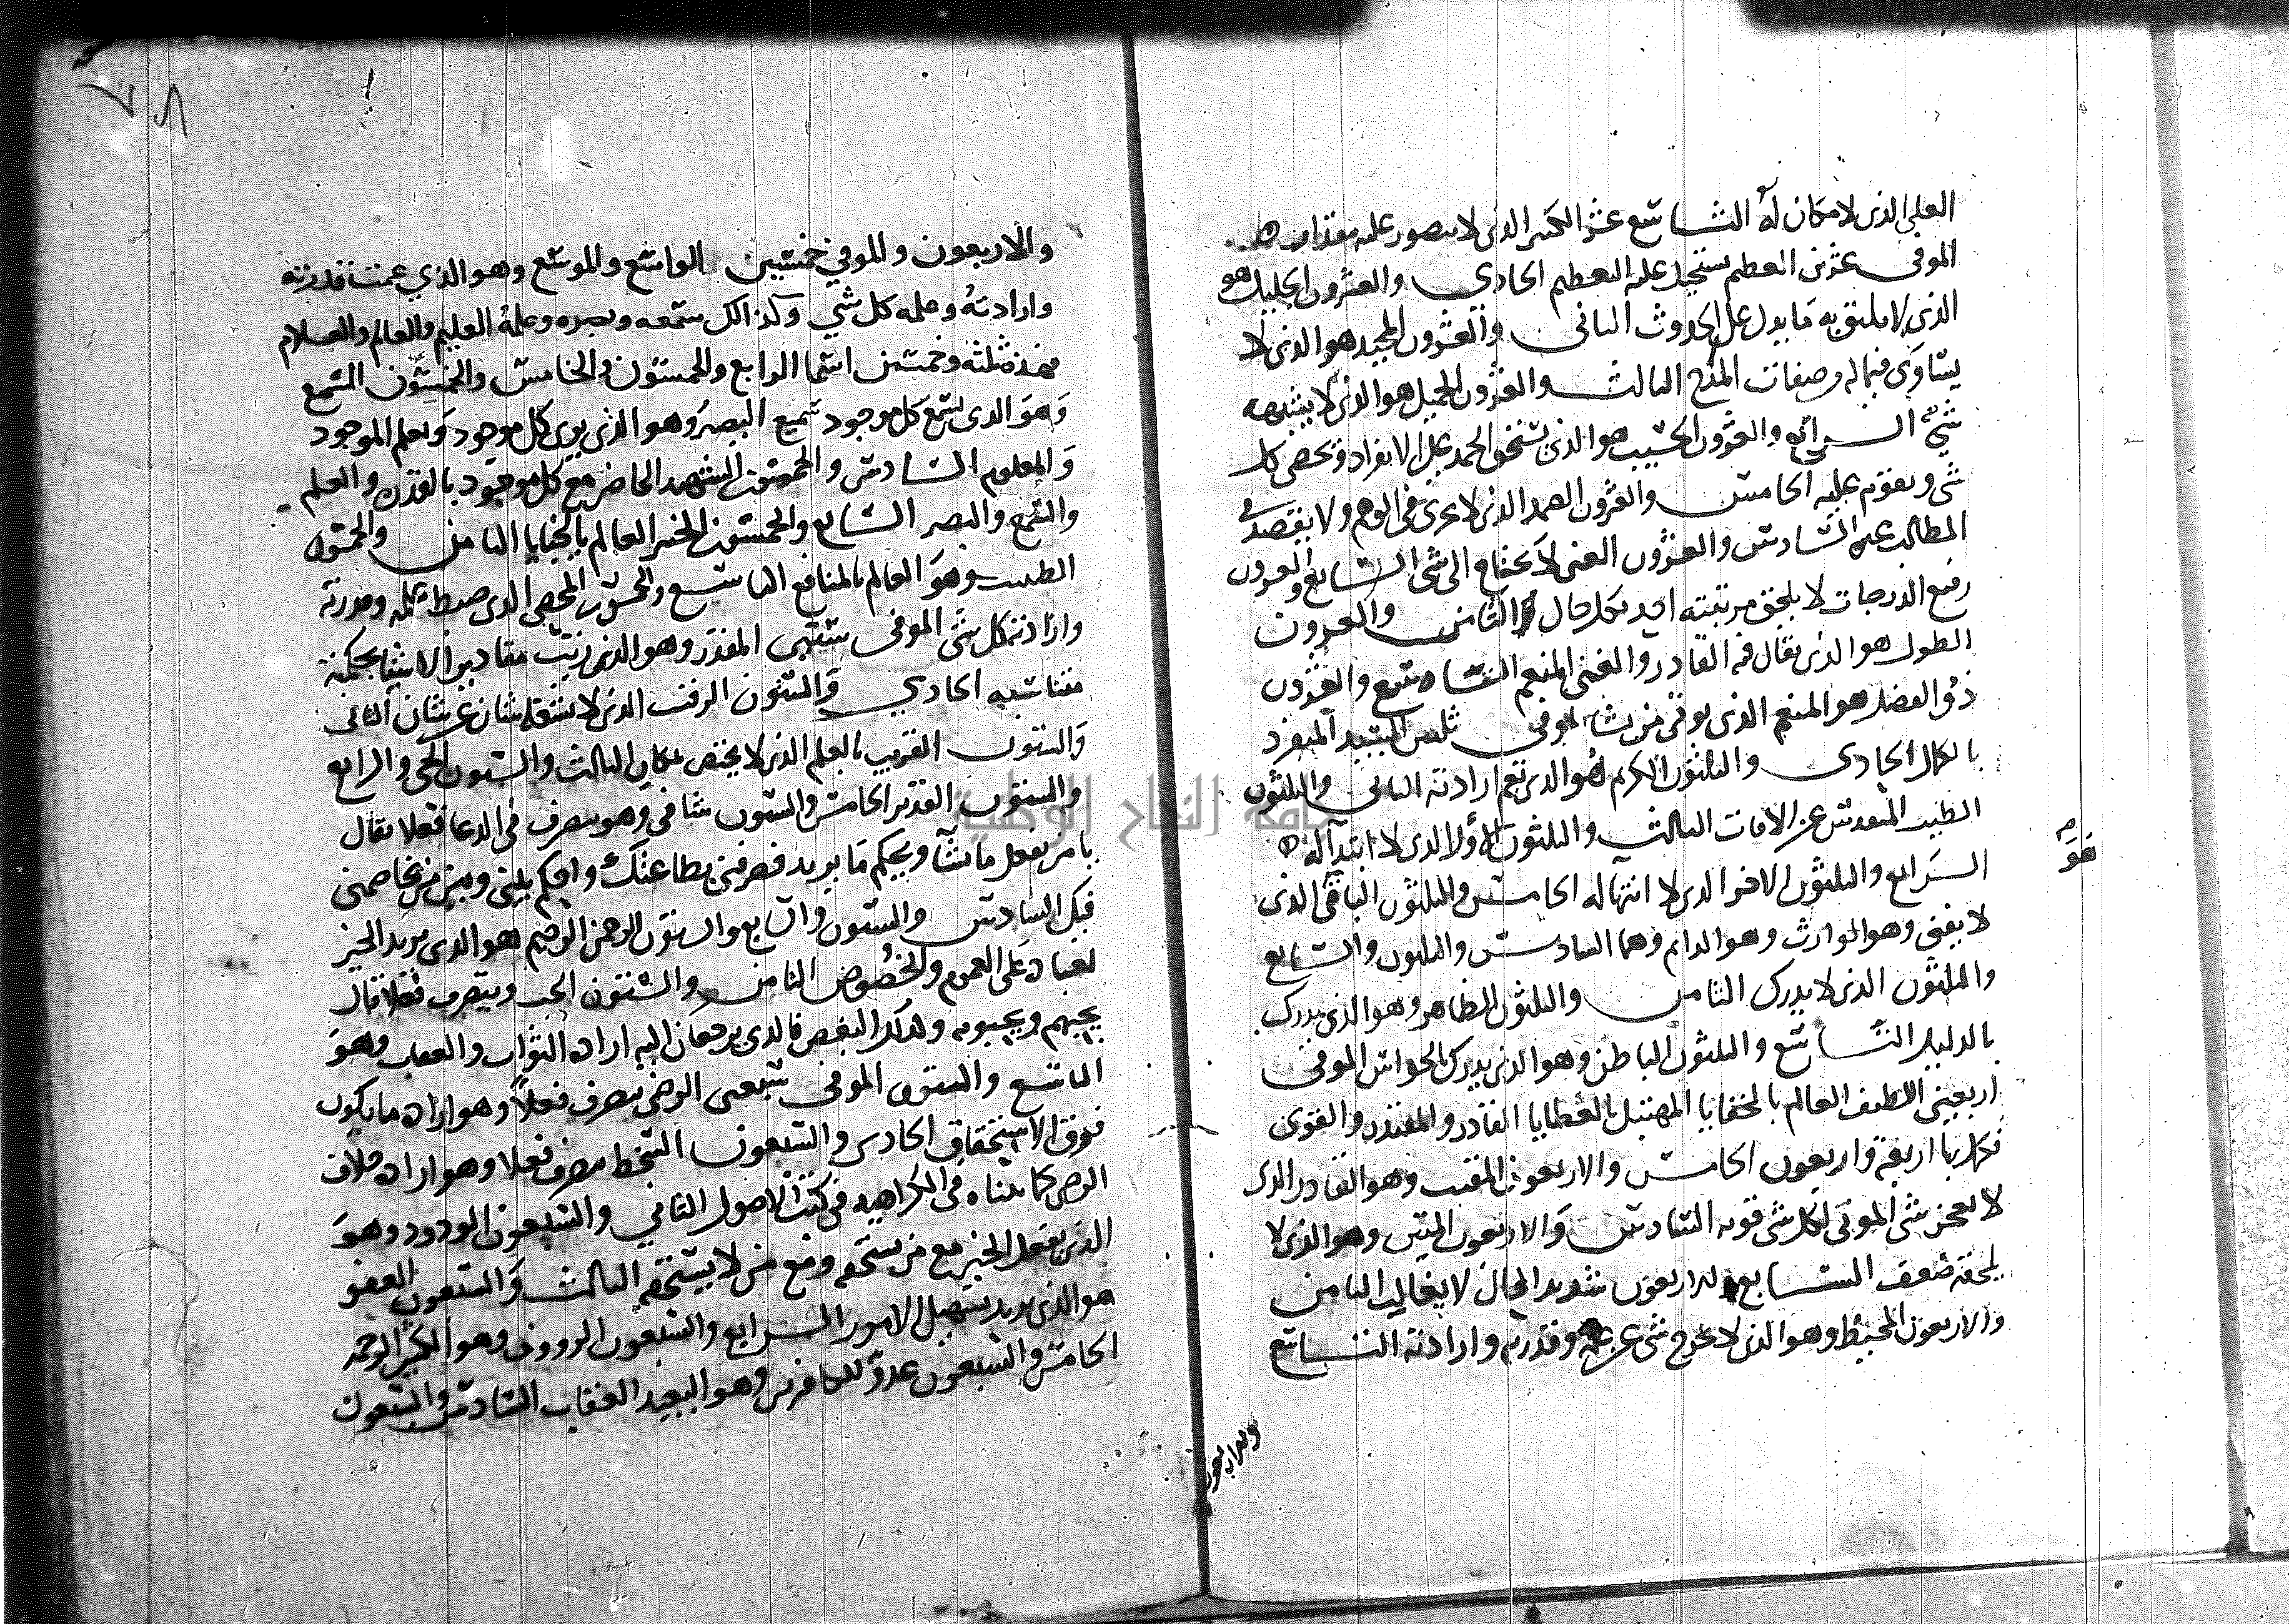 العلي الذي لا مكان له التاسع عشر الكبير الذي لا يتصور عليه مقدار هـ
الموفي عشرين العظيم يستحيل عليه التعظيم الحادي والعشرون الجليل هو
الذي لا يليق به ما يدل على الحدوث الثاني والعشرون المجيد هو الذي لا
يتساوى فيما له من صفات المدح الثالث والعشرون الجميل هو الذي لا يشبهه
شيء الرابع والعشرون الحسيب هو الذي يستحق الحمد على الانفراد ويحصي كل
شي ويقوم عليه الخامس والعشرون الصمد الذي لا يجرى في الوهم ولا يقتصد في
المطالب عنه السادس والعشرون الغني لا يحتاج الى شي السابع والعشرون
رفيع الدرجات لا يلحق مرتبته احد بكل حال الثامن والعشرون
الطول هو الذي يقال فيه القادر والغني المنعم التاسع والعشرون
ذو الفضل هو المنعم الذي يوفي من يشا الموفي ثلثين السيد المنفرد
بالكمال الحادي والثلثون الكريم هو الذي تعم ارادته الثاني والثلثون
الطيب المتقدس عن الافات الثالث والثلثون الاول الذي لا ابتدآ له
هو
الرابع والثلثون الاخر الذي لا انتها له الخامس والثلثون الباقي الذي
لا يفنى وهو الوارث وهو الدايم وهما السادس والثلثون والسابع
والثلثون الذي لا يدرك الثامن والثلثون الظاهر وهو الذي يدرك
بالدليل التاسع والثلثون الباطن وهو الذي يدرك بالحواس الموفي
اربعين اللطيف العالم بالخفايا المهتبل بالعطايا القادر والمقتدر والقوى
فكل بها اربعة واربعون الخامس والاربعون المقيت وهو القادر الذي
لا يعجزه شي الموتي لكل شي قوته السادس والاربعون المتين وهو الذي لا
يلحقه ضعف السابع والاربعون شديد المحال لا يغالب الثامن
والاربعون المحيط وهو الذي لا يخرج شي عن علمه وقدرته وارادته التاسع
والاربعون
والاربعون والموفي خمسين الواسع والموسع وهو الذي عمت قدرته
وارادته وعلمه كل شي وكذالك سمعه وبصره وعلمه العليم والعالم والعلام
فهذه ثلثه وخمسين اسما الرابع والخمسون والخامس والخمسون السمع
وهو الذي يسمع كل موجود سميع البصير وهو الذي يرى كل موجود ويعلم الموجود
والمعلوم السادس والخمسون الشهيد الحاضر مع كل موجود بالقدره والعلم
والسمع والبصر السابع والخمسون الخبير العالم بالخبايا الثامن والخمسون
الطبيب وهو العالم بالمنافع التاسع والخمسون المحصي الذي ضبط علمه وقدرته
وارادته كل شي الموفي ستين المقدر وهو الذي رتب مقادير الاشيا بحكمة
متناسبه الحادي والستون الرقيب الذي لا يشغله شان عن شان الثاني
والستون القريب بالعلم الذي لا يختص بمكان الثالث والستون الحي والرابع
والستون القدير الخامس والستون شافي وهو يتصرف في الدعا فعلا يقال
يا من يفعل ما يشآ ويحكم ما يريد فصرفني بطاعتك واحكم بيني وبين من يخاصمني
فيك السادس والستون والسابع والستون الرحمن الرحيم هو الذي يريد الخير
لعباده على العموم والخصوص الثامن والستون المحب ويتصرف فعلا قال
يحبهم ويحبونه وكذلك البغض فالذي يرجعان اليه اراده الثواب والعقاب وهو
التاسع والستون الموفي سبعين الرضى يتصرف فعلا وهو اراده ما يكون
فوق الاستحقاق الحادي والسبعون السخط يتصرف فعلا وهو اراده خلاف
الرضى كما بيناه في الكراهيه في كتب الاصول الثاني والسبعون الودود وهو
الذي يفعل الخير مع من يستحقه ومع من لا يستحقه الثالث والسبعون العفو
هو الذي يريد تسهيل الامور الرابع والسبعون الرووف وهو الكثير الرحمه
الخامس والسبعون عدو للكافرين وهو البعيد العقاب السادس والسبعون
جامعة النجاح الوطنية